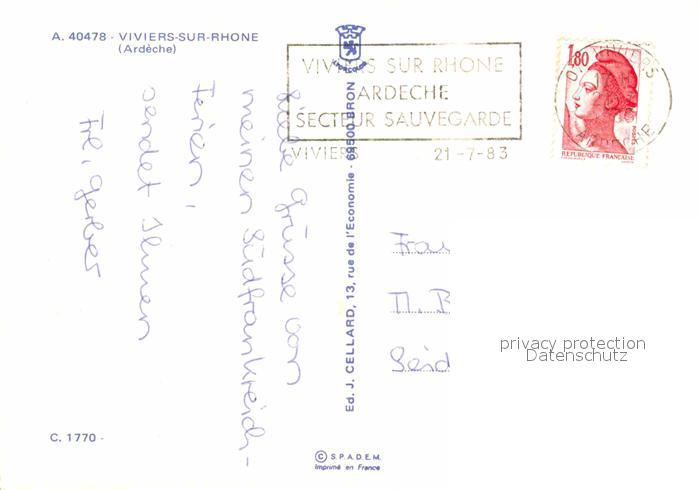 A. 40478 - VIVIERS-SUR-RHONE
(Ardèche)
VIVIERS SUR RHONE
ARDECHE
SECTEUR SAUVEGARDE
VIVIERS
21 -7-83
1,80
REPUBLIQUE FRANÇAISE
VIVIERS
ARDECHE
Liebe Grüsse von
meinen Südfrankreich-
Ferien,
sendet Ihnen
Frl. Gerber
Ed. J. CELLARD, 13, rue de l'Economie - 69500 BRON
Frau
M. B
privacy protection
Datenschutz
C. 1770 -
© S.P.A.D.E.M.
Imprimé en France